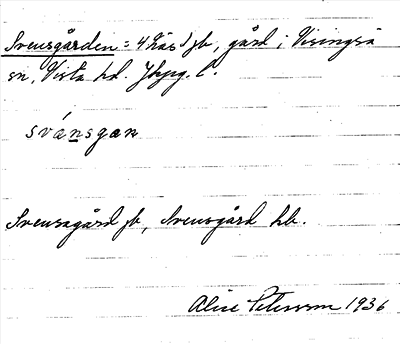 Svensgården: 4 Näs jb, gård i Visingsö
sn, Vista hd. Jkpg. l.
svánsgan
Svensagård jb, Svensgård hb.
Alice Petersson 1936